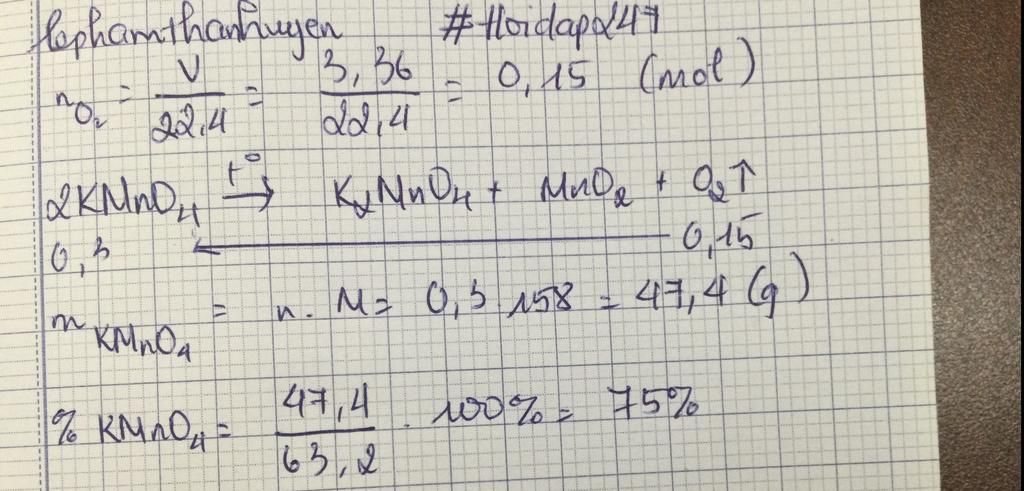 lephamthanhuyen #Hoidap247
n_O₂ = V/22,4 = 3,36/22,4 = 0,15 (mol)
2KMnO₄ —t°→ K₂MnO₄ + MnO₂ + O₂↑
0,3 ← 0,15
m_KMnO₄ = n. M = 0,3 . 158 = 47,4 (g)
% KMnO₄ = 47,4/63,2 . 100% = 75%